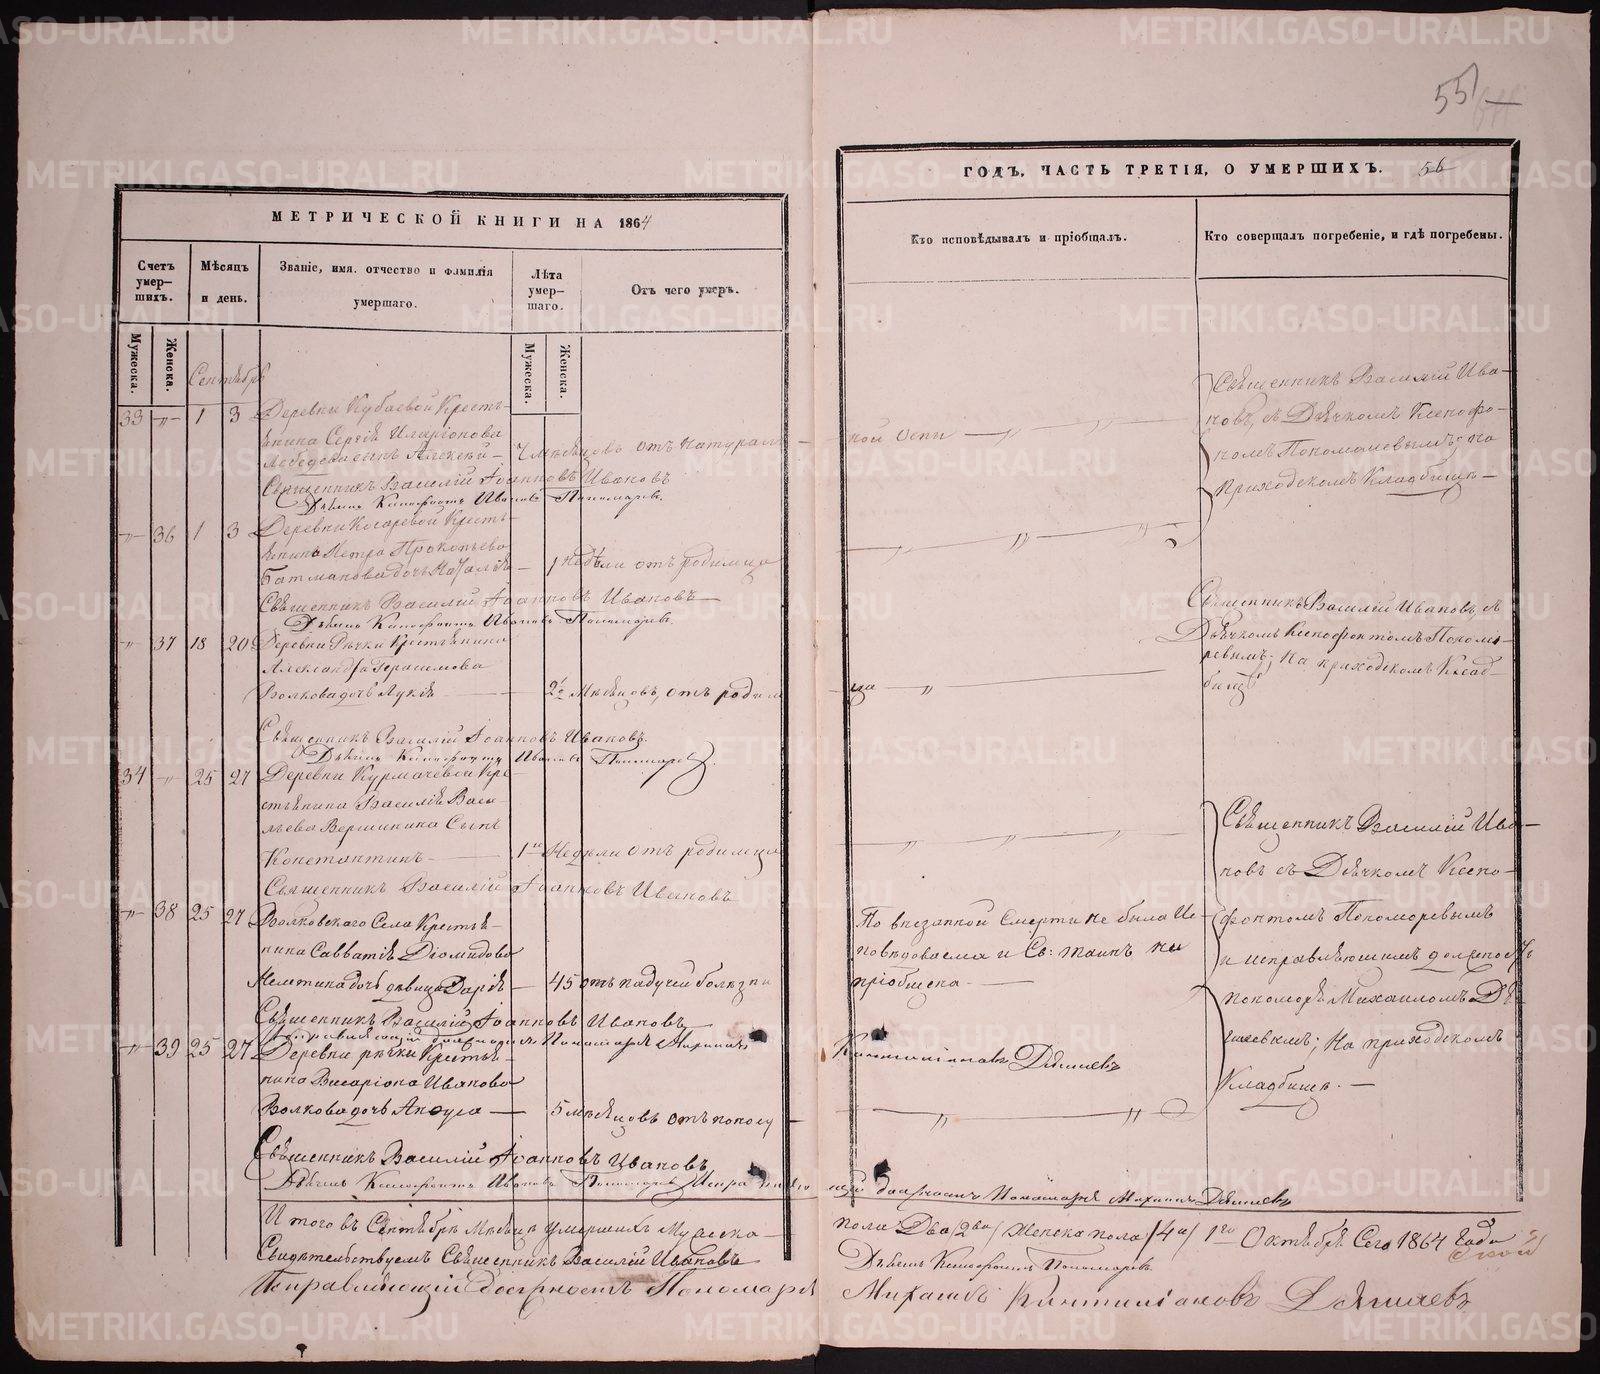 55
МЕТРИЧЕСКОЙ КНИГИ НА 1864
Счетъ умер—шихъ.
Мѣсяцъ и день.
Званіе, имя, отчество и фамилія умершаго.
Лѣта умер—шаго.
Отъ чего умеръ.
Мужеска.
Женска.
Мужеска.
Женска.
Сентябрь
33 —„— 1 3 Деревни Кубаевой Кресть-
янина Сергія Иларіонова
сынъ Алексѣй — Мѣсяцовъ отъ натураль-
Священникъ Василій Іоанновъ Ивановъ
Дьячекъ Ксенофонтъ Ивановъ Пономаревъ.
—„— 36 1 3 Деревни Косаревой Кресть-
янина Петра Прокопьева
Батманова дочь Наталія — 1 Недѣли отъ родимца
Священникъ Василій Іоанновъ Ивановъ
Дьячекъ Ксенофонтъ Ивановъ Пономаревъ.
„ 37 18 20 Деревни Рѣчки Крестьянина
Александра Герасимова
Волкова дочь Лукія — 2 Мѣсяцовъ, отъ родим
Священникъ Василій Іоанновъ Ивановъ.
Дьячекъ Ксенофонтъ Ивановъ Пономаревъ.
34 —„— 25 27 Деревни Курмачевой Кре-
стьянина Василія Васи-
льева Вершинина Сынъ
Константинъ — Недѣли отъ родимца
Священникъ Василій Іоанновъ Ивановъ
—„— 38 25 27 Волковскаго Села Крестья-
нина Савватія Діомидова
дочь девица Дарія — 45 отъ падучей болезни
Священникъ Василій Іоанновъ Ивановъ
Исправляющій должность Пономаря Михаилъ
—„— 39 25 27 Деревни рѣчки Крестья-
нина Висаріона Иванова
Волкова дочь Акоуля — 5 мѣсяцовъ отъ поносу
Священникъ Василій Іоанновъ Ивановъ
Дьячекъ Ксенофонтъ Ивановъ Пономаревъ Исправляю
Итого въ Сентябрѣ Мѣсяцѣ умершихъ Мужеска
Свидѣтельствуемъ Священникъ Василій Ивановъ
Исправляющій Должность Пономаря
ГОДЪ, ЧАСТЬ ТРЕТІЯ, О УМЕРШИХЪ. 56
Кто исповѣдывалъ и пріобщалъ.
Кто совершалъ погребеніе, и гдѣ погребены.
ной оспы — „ — „ —
Священникъ Василій Ива-
новъ, съ Дьячкомъ Ксенофо-
номъ Пономаревымъ; на
приходскомъ Кладбищѣ —
— „ — „ — „
Священникъ Василій Ивановъ, съ
Дьячкомъ Ксенофонтомъ Понома-
ревымъ; на приходскомъ Клад-
бищѣ
ца — „ —
— „ — „ — „ —
Священникъ Василій Ива-
новъ съ Дьячкомъ Ксено-
фонтомъ Пономаревымъ
и исправляющимъ должность
пономаря Михаиломъ Дя-
гилевымъ; На приходскомъ
Кладбищѣ. —
По внезапной смерти не была Ис-
повѣдована и Св: таинъ не
пріобщена. —
Дягилевъ
— „ — „
щій должность Пономаря Михаилъ Дягилевъ
пола Два /2ва/ Женска пола /4е/ 1го Октября Сего 1864 Года
Дьячекъ Ксенофонтъ Пономаревъ
Михаилъ Дягилевъ
METRIKI.GASO-URAL.RU